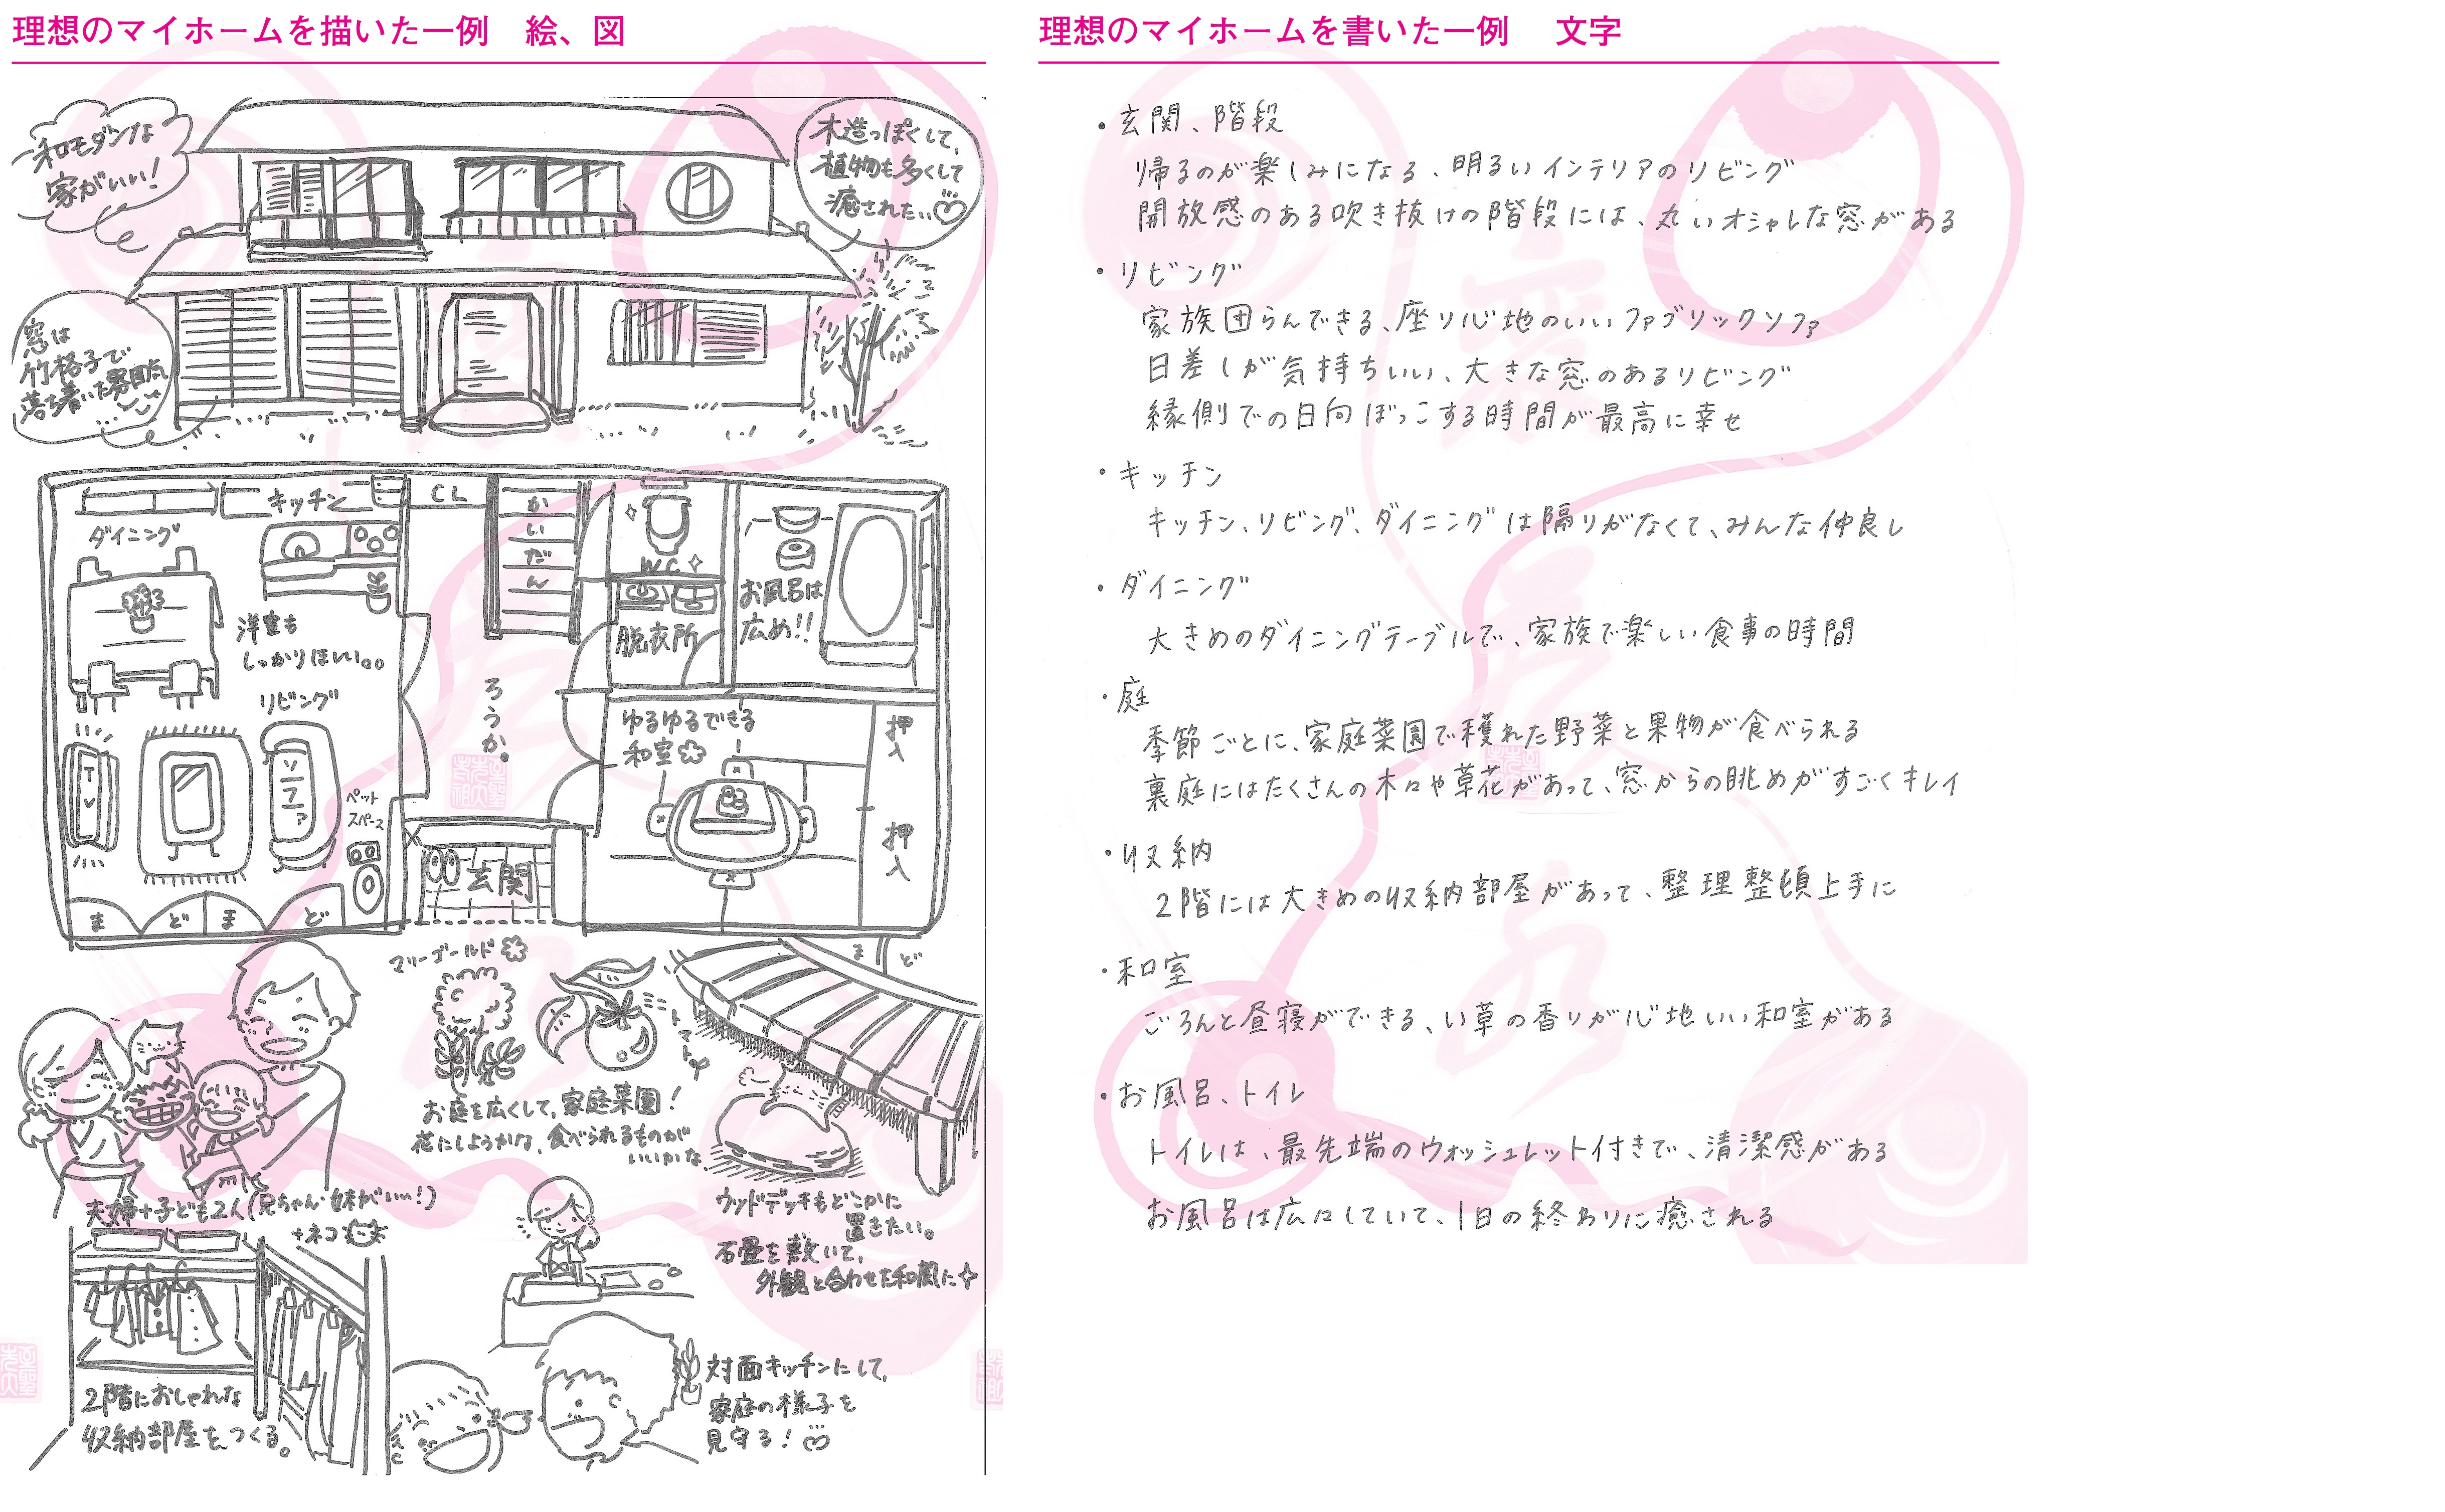 理想のマイホームを描いた一例　絵、図
和モダンな
家がいい！
木造っぽくして、
植物も多くして
癒されたい♡
窓は
竹格子で
落ち着いた雰囲気
キッチン
CL
かいだん
ダイニング
WC
お風呂は
広め!!
脱衣所
洋室も
しっかりほしい。。
リビング
ろうか。
ゆるゆるできる
和室
押入
押入
TV
ソファ
ペット
スペース
玄関
まど
まど
マリーゴールド
まど
トマト
お庭を広くして、家庭菜園！
花にしようかな、食べられるものが
いいかな
夫婦+子ども2人(兄ちゃん・妹がいい！)
+ネコ
ウッドデッキもどこかに
置きたい。
石畳を敷いて、
外観と合わせた和風に
2階におしゃれな
収納部屋をつくる。
対面キッチンにして、
家庭の様子を
見守る！♡
理想のマイホームを書いた一例　文字
・玄関、階段
帰るのが楽しみになる、明るいインテリアのリビング
開放感のある吹き抜けの階段には、丸いオシャレな窓がある
・リビング
家族団らんできる、座り心地のいいファブリックソファ
日差しが気持ちいい、大きな窓のあるリビング
縁側での日向ぼっこする時間が最高に幸せ
・キッチン
キッチン、リビング、ダイニングは隔りがなくて、みんな仲良し
・ダイニング
大きめのダイニングテーブルで、家族で楽しい食事の時間
・庭
季節ごとに、家庭菜園で穫れた野菜と果物が食べられる
裏庭にはたくさんの木々や草花があって、窓からの眺めがすごくキレイ
・収納
2階には大きめの収納部屋があって、整理整頓上手に
・和室
ごろんと昼寝ができる、い草の香りが心地いい和室がある
・お風呂、トイレ
トイレは、最先端のウォッシュレット付きで、清潔感がある
お風呂は広々していて、1日の終わりに癒される